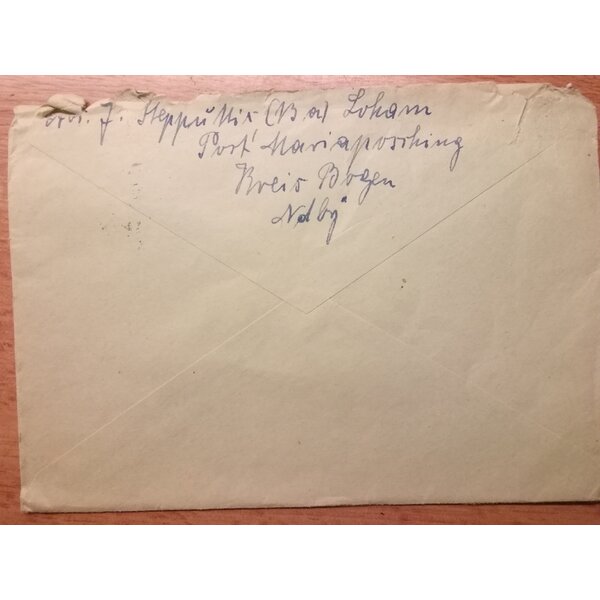 J. Stepputtis (13a) Loham
Post Mariaposching
Kreis Bogen
Ndby